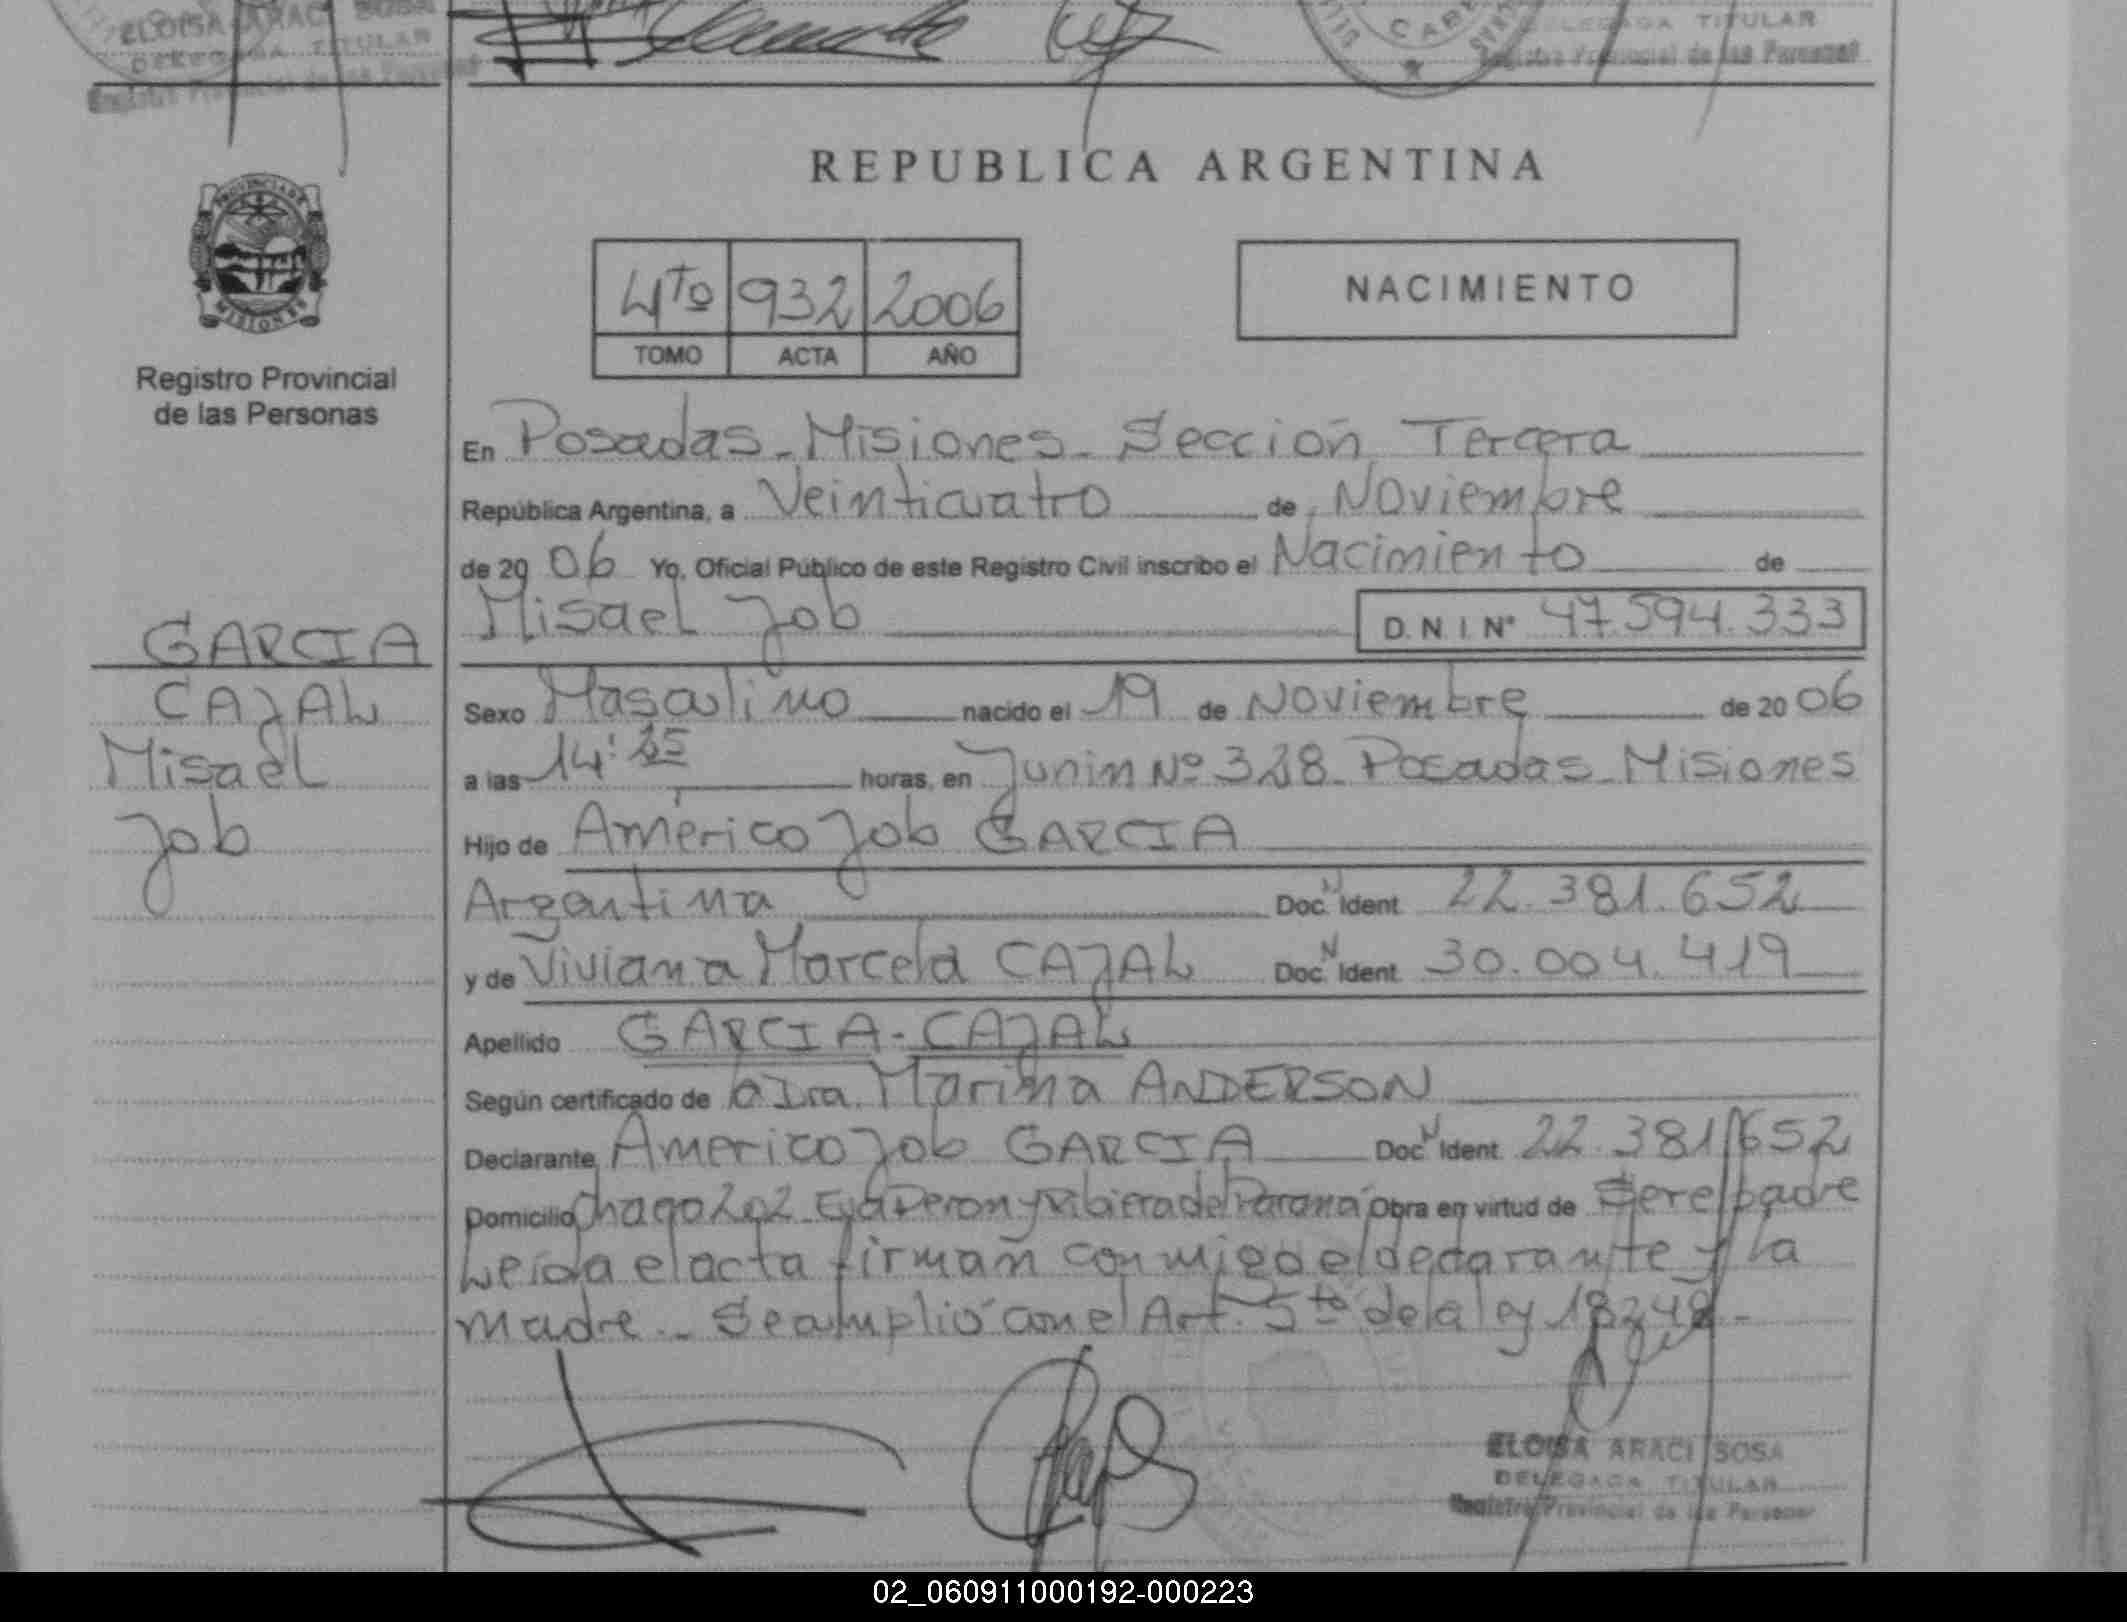 ELOISA ARACI SOSA
DELEGADA TITULAR
Registro Provincial de las Personas
CARE
DELEGADA TITULAR
Registro Provincial de las Personas
PROVINCIA DE
MISIONES
Registro Provincial
de las Personas
REPUBLICA ARGENTINA
4to 932 2006
TOMO ACTA AÑO
NACIMIENTO
En Posadas - Misiones - Sección Tercera
República Argentina, a Veinticuatro de Noviembre
de 20 06 Yo, Oficial Público de este Registro Civil inscribo el Nacimiento de
Misael Job D.N.I. Nº 47.594.333
GARCIA
CAJAL
Misael
Job
Sexo Masculino nacido el 19 de Noviembre de 20 06
a las 14: horas, en Junin Nº 328 Posadas - Misiones
Hijo de Américo Job GARCIA
Argentina Doc. N Ident 22.381.652
y de Viviana Marcela CAJAL Doc. N Ident 30.004.419
Apellido GARCIA - CAJAL
Según certificado de la Dra. Marina ANDERSON
Declarante Americo Job GARCIA Doc. N Ident 22.381.652
Domicilio 202 Eva Peron y Ribiera del Parana Obra en virtud de Ser el padre
Leida el acta firman conmigo el declarante y la
madre. - Se amplió con el Art. 5to de la ley 18248 -
ELOISA ARACI SOSA
DELEGADA TITULAR
Registro Provincial de las Personas
02_060911000192-000223